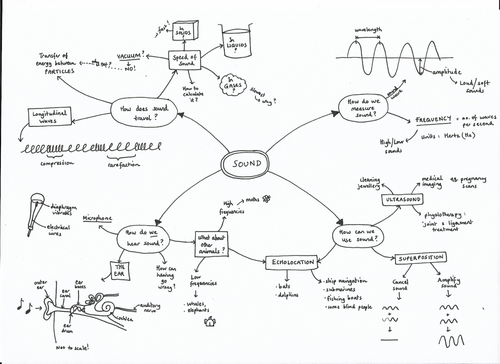 SOUND
How does sound
travel?
Transfer of
energy between
PARTICLES
VACUUM?
↓
NO!
Speed of
Sound
In
SOLIDS?
fast!
In
LIQUIDS?
In
GASES?
slowest
→ why?
How to
calculate
it?
Longitudinal
waves
compression
rarefaction
How do we
measure
sound?
sound
wave
wavelength
amplitude
Loud/soft
sounds
FREQUENCY = no. of waves
per second
Units = Hertz (Hz)
High/Low
sounds
How do we
hear sound?
Microphone
diaphragm
vibrates
electrical
wires
THE
EAR
How can
hearing
go
wrong?
outer
ear
ear
canal
ear
bones
ear
drum
auditory
nerve
cochlea
not to scale!
What about
other
animals?
High
frequencies
→ moths
Low
frequencies
whales,
elephants
How can we
use sound?
ECHOLOCATION
• bats
• dolphins
• ship navigation
• submarines
• fishing boats
• some blind people
ULTRASOUND
cleaning
jewellery
medical
imaging
eg pregnancy
scans
physiotherapy:
joint & ligament
treatment
SUPERPOSITION
Cancel
sound
Amplify
sound